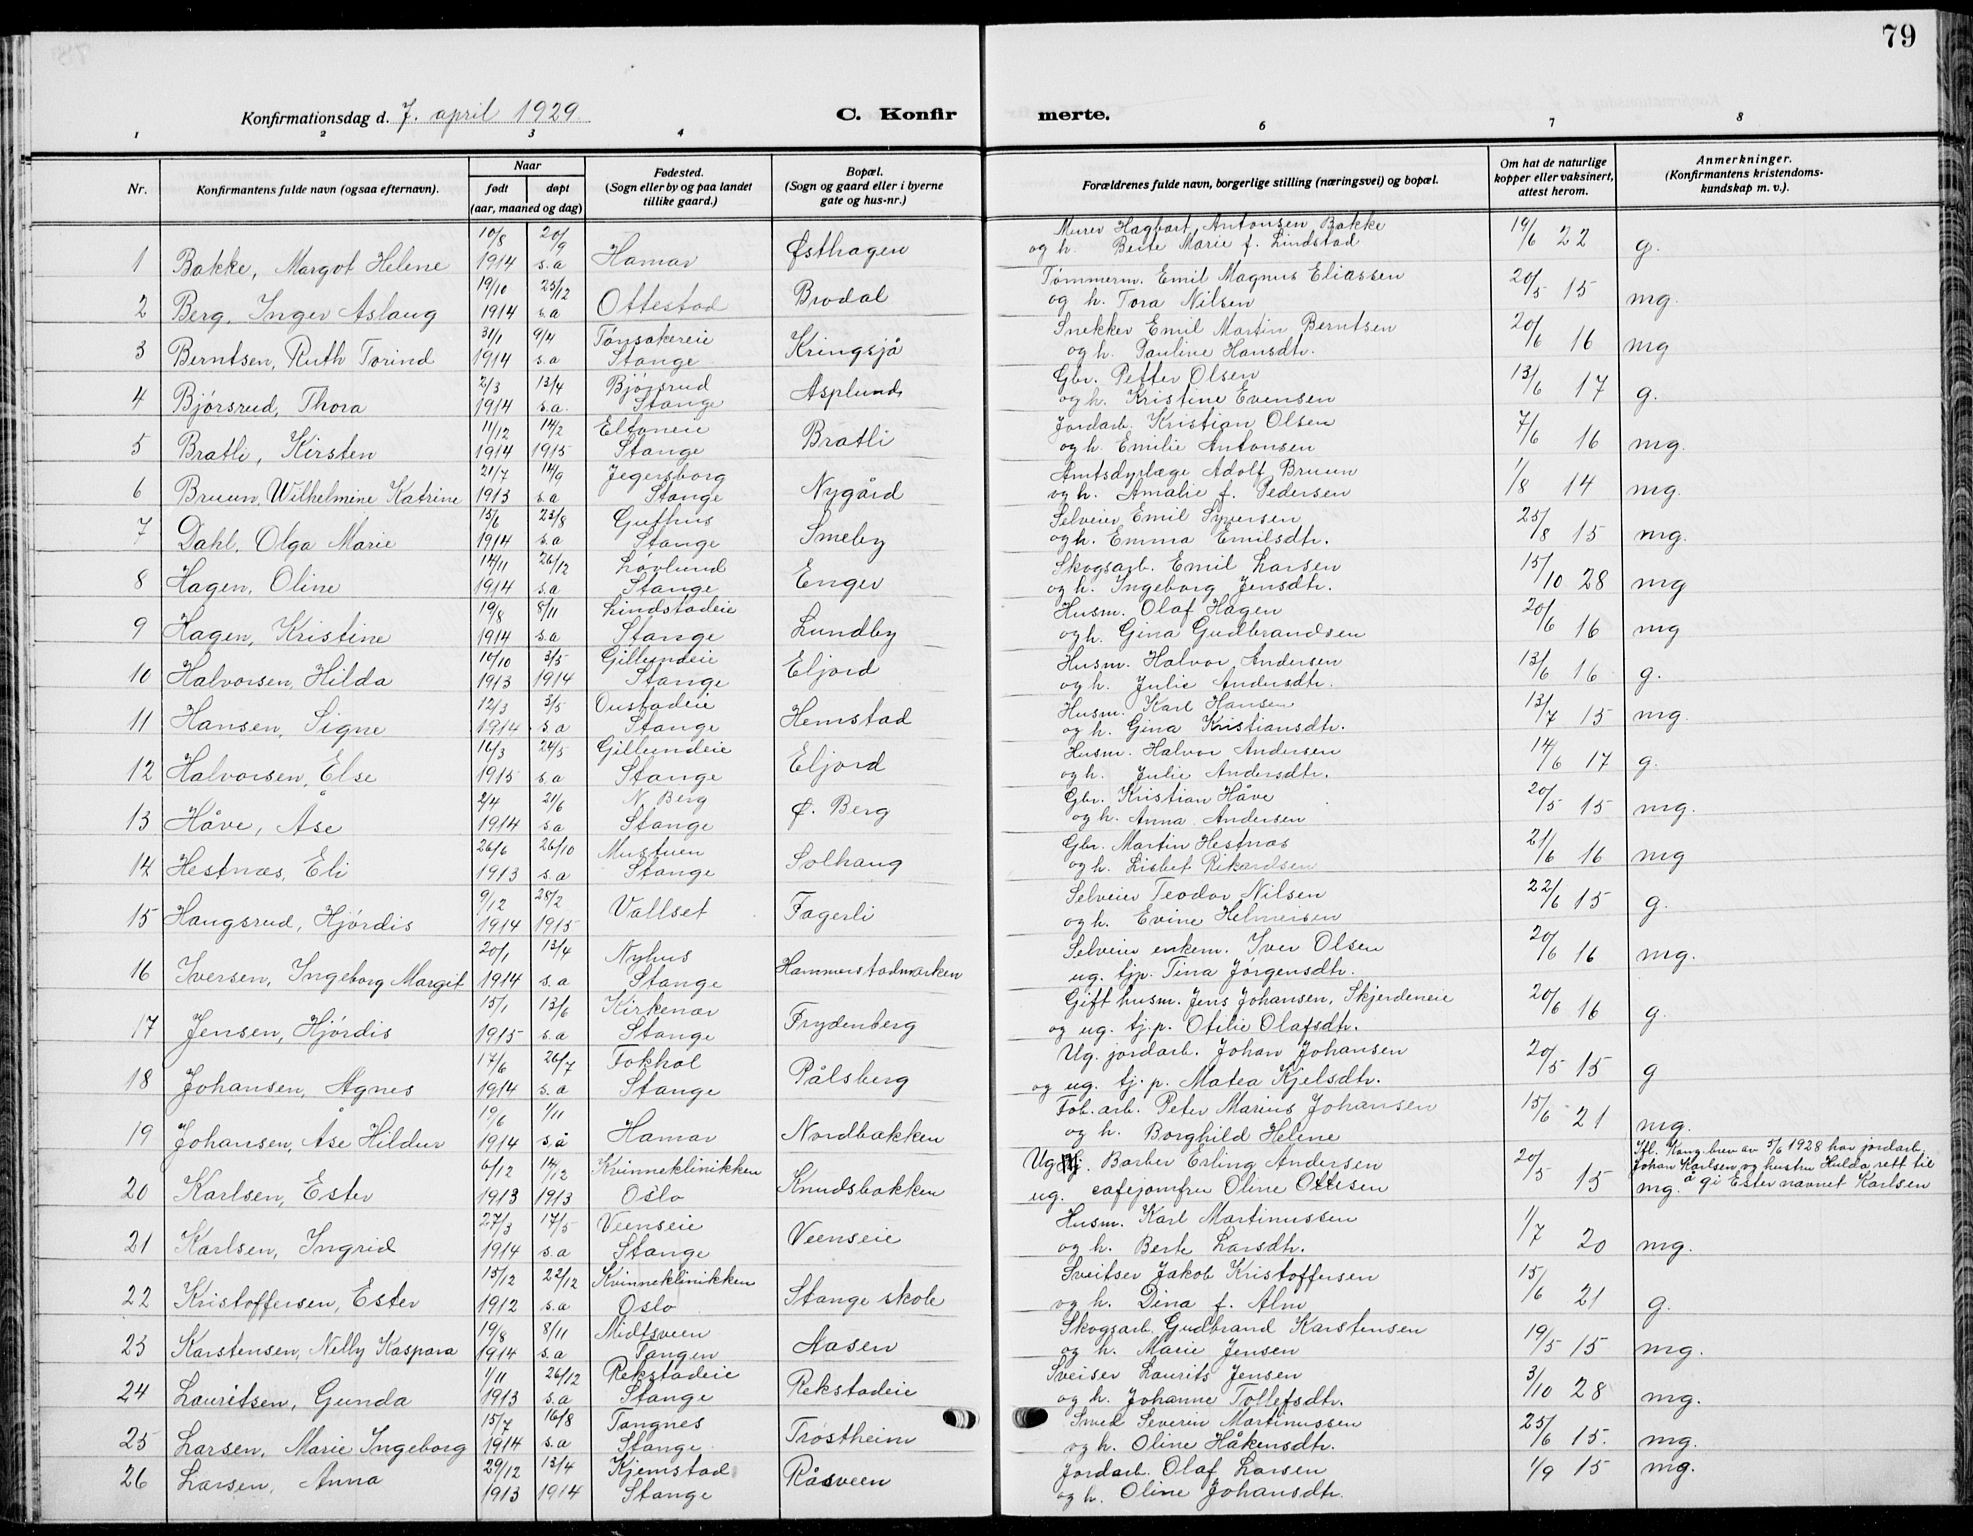 79
Konfirmationsdag d. 7. april 1929.
C. Konfirmerte.
1 2 3 4 6 7 8
Nr.
Konfirmantens fulde navn (ogsaa efternavn).
Naar
født
døpt
(aar, maaned og dag)
Fødested.
(Sogn eller by og paa landet
tillike gaard.)
Bopæl.
(Sogn og gaard eller i byerne
gate og hus-nr.)
Forældrenes fulde navn, borgerlige stilling (næringsvei) og bopæl.
Om hat de naturlige
kopper eller vaksinert,
attest herom.
Anmerkninger.
(Konfirmantens kristendoms-
kundskap m. v.).
1 Bakke, Margot Helene 10/8 1914 20/9 s.a Hamar Østhagen Murer Hagbart Antonsen Bakke og h. Berte Marie f. Lindstad 19/6 22 g.
2 Berg, Inger Aslaug 19/10 1914 23/12 s.a Ottestad Brodal Tømmerm. Emil Magnus Eliassen og h. Tora Nilsen 20/5 15 mg.
3 Berntsen, Ruth Torind 31/1 1914 9/4 s.a Tønsakereie Stange Kringsjå Snekker Emil Martin Berntsen og h. Pauline Hansdtr. 20/6 16 mg
4 Bjørsrud, Thora 2/3 1914 13/4 s.a. Bjørsrud Stange Asplund Gbr. Petter Olsen og h. Kristine Evensen 13/6 17 g.
5 Bratli, Kirsten 11/12 1914 14/2 1915 Eltoneie Stange Bratli Jordarb. Kristian Olsen og h. Emilie Antonsen 7/6 16 mg.
6 Bruun, Wilhelmine Katrine 21/7 1913 14/9 s.a Jegersborg Stange Nygård Amtsdyrlæge Adolf Bruun og h. Amalie f. Pedersen 1/8 14 mg.
7 Dahl, Olga Marie 15/6 1914 23/8 s.a Guthus Stange Smeby Selveier Emil Syversen og h. Emma Emilsdtr. 25/8 15 mg.
8 Hagen, Oline 14/11 1914 26/12 s.a Løvlund Stange Enger Skogsarb. Emil Larsen og h. Ingeborg Jensdtr. 15/10 28 mg
9 Hagen, Kristine 19/8 1914 8/11 s.a Lindstadeie Stange Lundby Husm. Olaf Hagen og h. Gina Gudbrandsen 20/6 16 mg
10 Halvorsen, Hilda 10/10 1913 3/5 1914 Gillundeie Stange Eljord Husm. Halvor Andersen og h. Julie Andersdtr. 13/6 16 g.
11 Hansen, Signe 12/3 1914 3/5 s.a Oustadeie Stange Hemstad Husm. Karl Hansen og h. Gina Kristiansdtr. 13/7 15 mg.
12 Halvorsen, Else 16/3 1915 24/5 s.a Gillundeie Stange Eljord Husm. Halvor Andersen og h. Julie Andersdtr. 14/6 17 g.
13 Håve, Åse 2/4 1914 21/6 s a N. Berg Stange Ø. Berg Gbr. Kristian Håve og h. Anna Andersen 20/5 15 mg.
14 Hestnæs, Eli 26/6 1913 26/10 s.a Mustuen Stange Solhaug Gbr. Martin Hestnæs og h. Lisbet Rikardsen 21/6 16 mg
15 Haugsrud, Hjørdis 9/12 1914 28/2 1915 Vallset Fagerli Selveier Teodor Nilsen og h. Evine Helmersen 22/6 15 g.
16 Iversen, Ingeborg Margit 20/1 1914 13/4 s.a Nyhus Stange Hammerstadmarken Selveier enkem. Iver Olsen ug. tjp. Tina Jørgensdtr. 20/6 16 mg.
17 Jensen, Hjørdis 15/1 1915 13/6 s.a Kirkenær Stange Frydenberg Gift husm. Jens Johansen, Skjerdeneie og ug. tj.p. Otilie Olafsdtr. 20/6 16 g.
18 Johansen, Agnes 17/6 1914 26/7 s.a Fokhol Stange Pålsberg Ug. jordarb. Johan Johansen og ug. tj. p. Matea Kjelsdtr. 20/5 15 g
19 Johansen, Åse Hildur 19/6 1914 1/11 s.å Hamar Nordbakken Fab. arb. Peter Marius Johansen og h. Borghild Helene 15/6 21 mg.
20 Karlsen, Ester 6/12 1913 14/12 1913 Kvinneklinikken Oslo Knudsbakken Ug. Barber Erling Andersen ug. cafejomfru Oline Ottesen 20/5 15 mg.
Ifl. Kong. brev av 5/6 1928 har jordarb.
Johan Karlsen og hustru Hulda rett til
å gi Ester navnet Karlsen
21 Karlsen, Ingrid 27/3 1914 17/5 s.a Veenseie Stange Veenseie Husm. Karl Martinussen og h. Berte Larsdtr. 1/7 20 mg.
22 Kristoffersen, Ester 15/12 1912 22/12 s.a Kvinneklinikken Oslo Stange skole Sveitser Jakob Kristoffersen og h. Dina f. Alm 15/6 21 g.
23 Karstensen, Nelly Kaspara 19/8 1914 8/11 s.a Midtsveen Tangen Aasen Skogsarb. Gudbrand Karstensen og h. Marie Jensen 19/5 15 mg.
24 Lauritsen, Gunda 1/11 1913 26/12 s.a Rekstadeie Stange Rekstadeie Sveiser Laurits Jensen og h. Johanne Tollefsdtr. 3/10 28 mg.
25 Larsen, Marie Ingeborg 15/7 1914 16/8 s.a Tangnes Stange Trøstheim Smed Severin Martinussen og h. Oline Håkensdtr. 25/6 15. mg.
26 Larsen, Anna 29/12 1913 13/4 1914 Kjemstad Stange Råsveen Jordarb. Olaf Larsen og h. Oline Johansdtr. 1/9 15 mg.